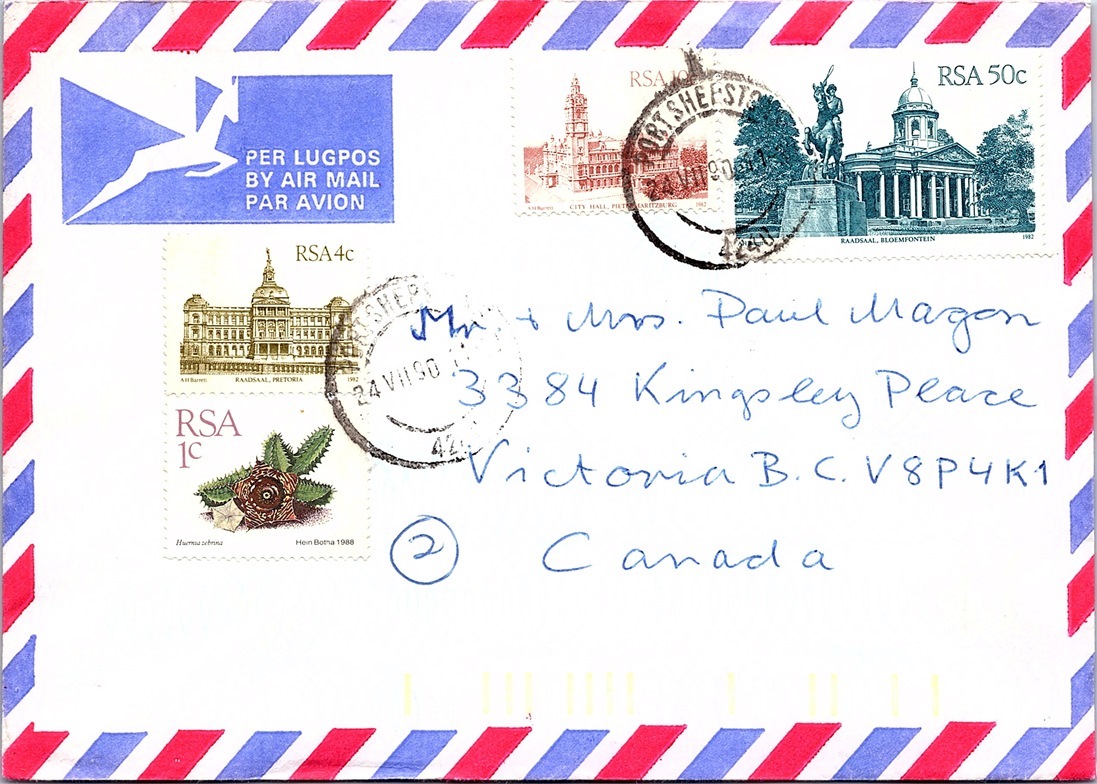 PER LUGPOS
BY AIR MAIL
PAR AVION
RSA 10c
A H Barrett CITY HALL, PIETERMARITZBURG 1982
RSA 50c
RAADSAAL, BLOEMFONTEIN 1982
PORT SHEPSTO
24 VII 90
4240
RSA 4c
A H Barrett RAADSAAL, PRETORIA 1982
PORT SHEP
24 VII 90
424
RSA
1c
Huernia zebrina Hein Botha 1988
Mr. + Mrs. Paul Magon
3384 Kingsley Place
Victoria B.C. V8P4K1
2
Canada